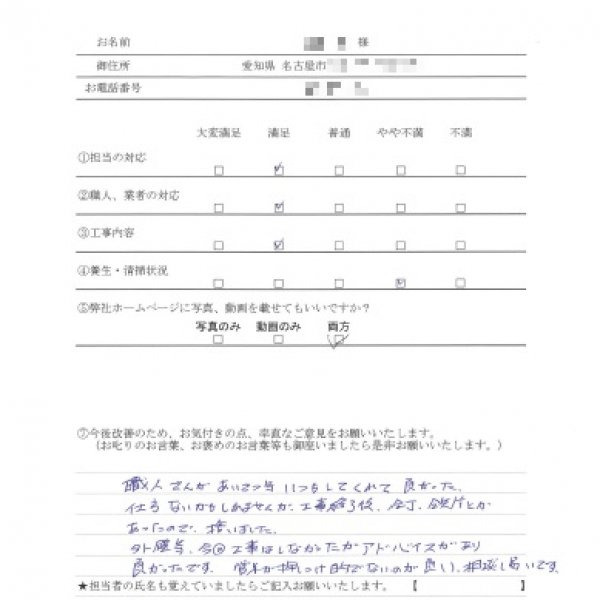 お名前 様
御住所 愛知県 名古屋市
お電話番号
大変満足 満足 普通 やや不満 不満
①担当の対応
②職人、業者の対応
③工事内容
④養生・清掃状況
⑤弊社ホームページに写真、動画を載せてもいいですか?
写真のみ 動画のみ 両方
⑦今後改善のため、お気付きの点、率直なご意見をお願いいたします。
(お叱りのお言葉、お褒めのお言葉等も御座いましたら是非お願いいたします。)
職人さんがあいさつ等いつもしてくれて良かった。
仕方ないかもしれませんが、工事終了後、釘、鉄片とか
あったので、拾いました。
外壁等、今回工事はしなかったがアドバイスがあり
良かったです。営業が押しつけ的でないのが良い、相談し易いです。
★担当者の氏名も覚えていましたらご記入お願いいたします。【 】